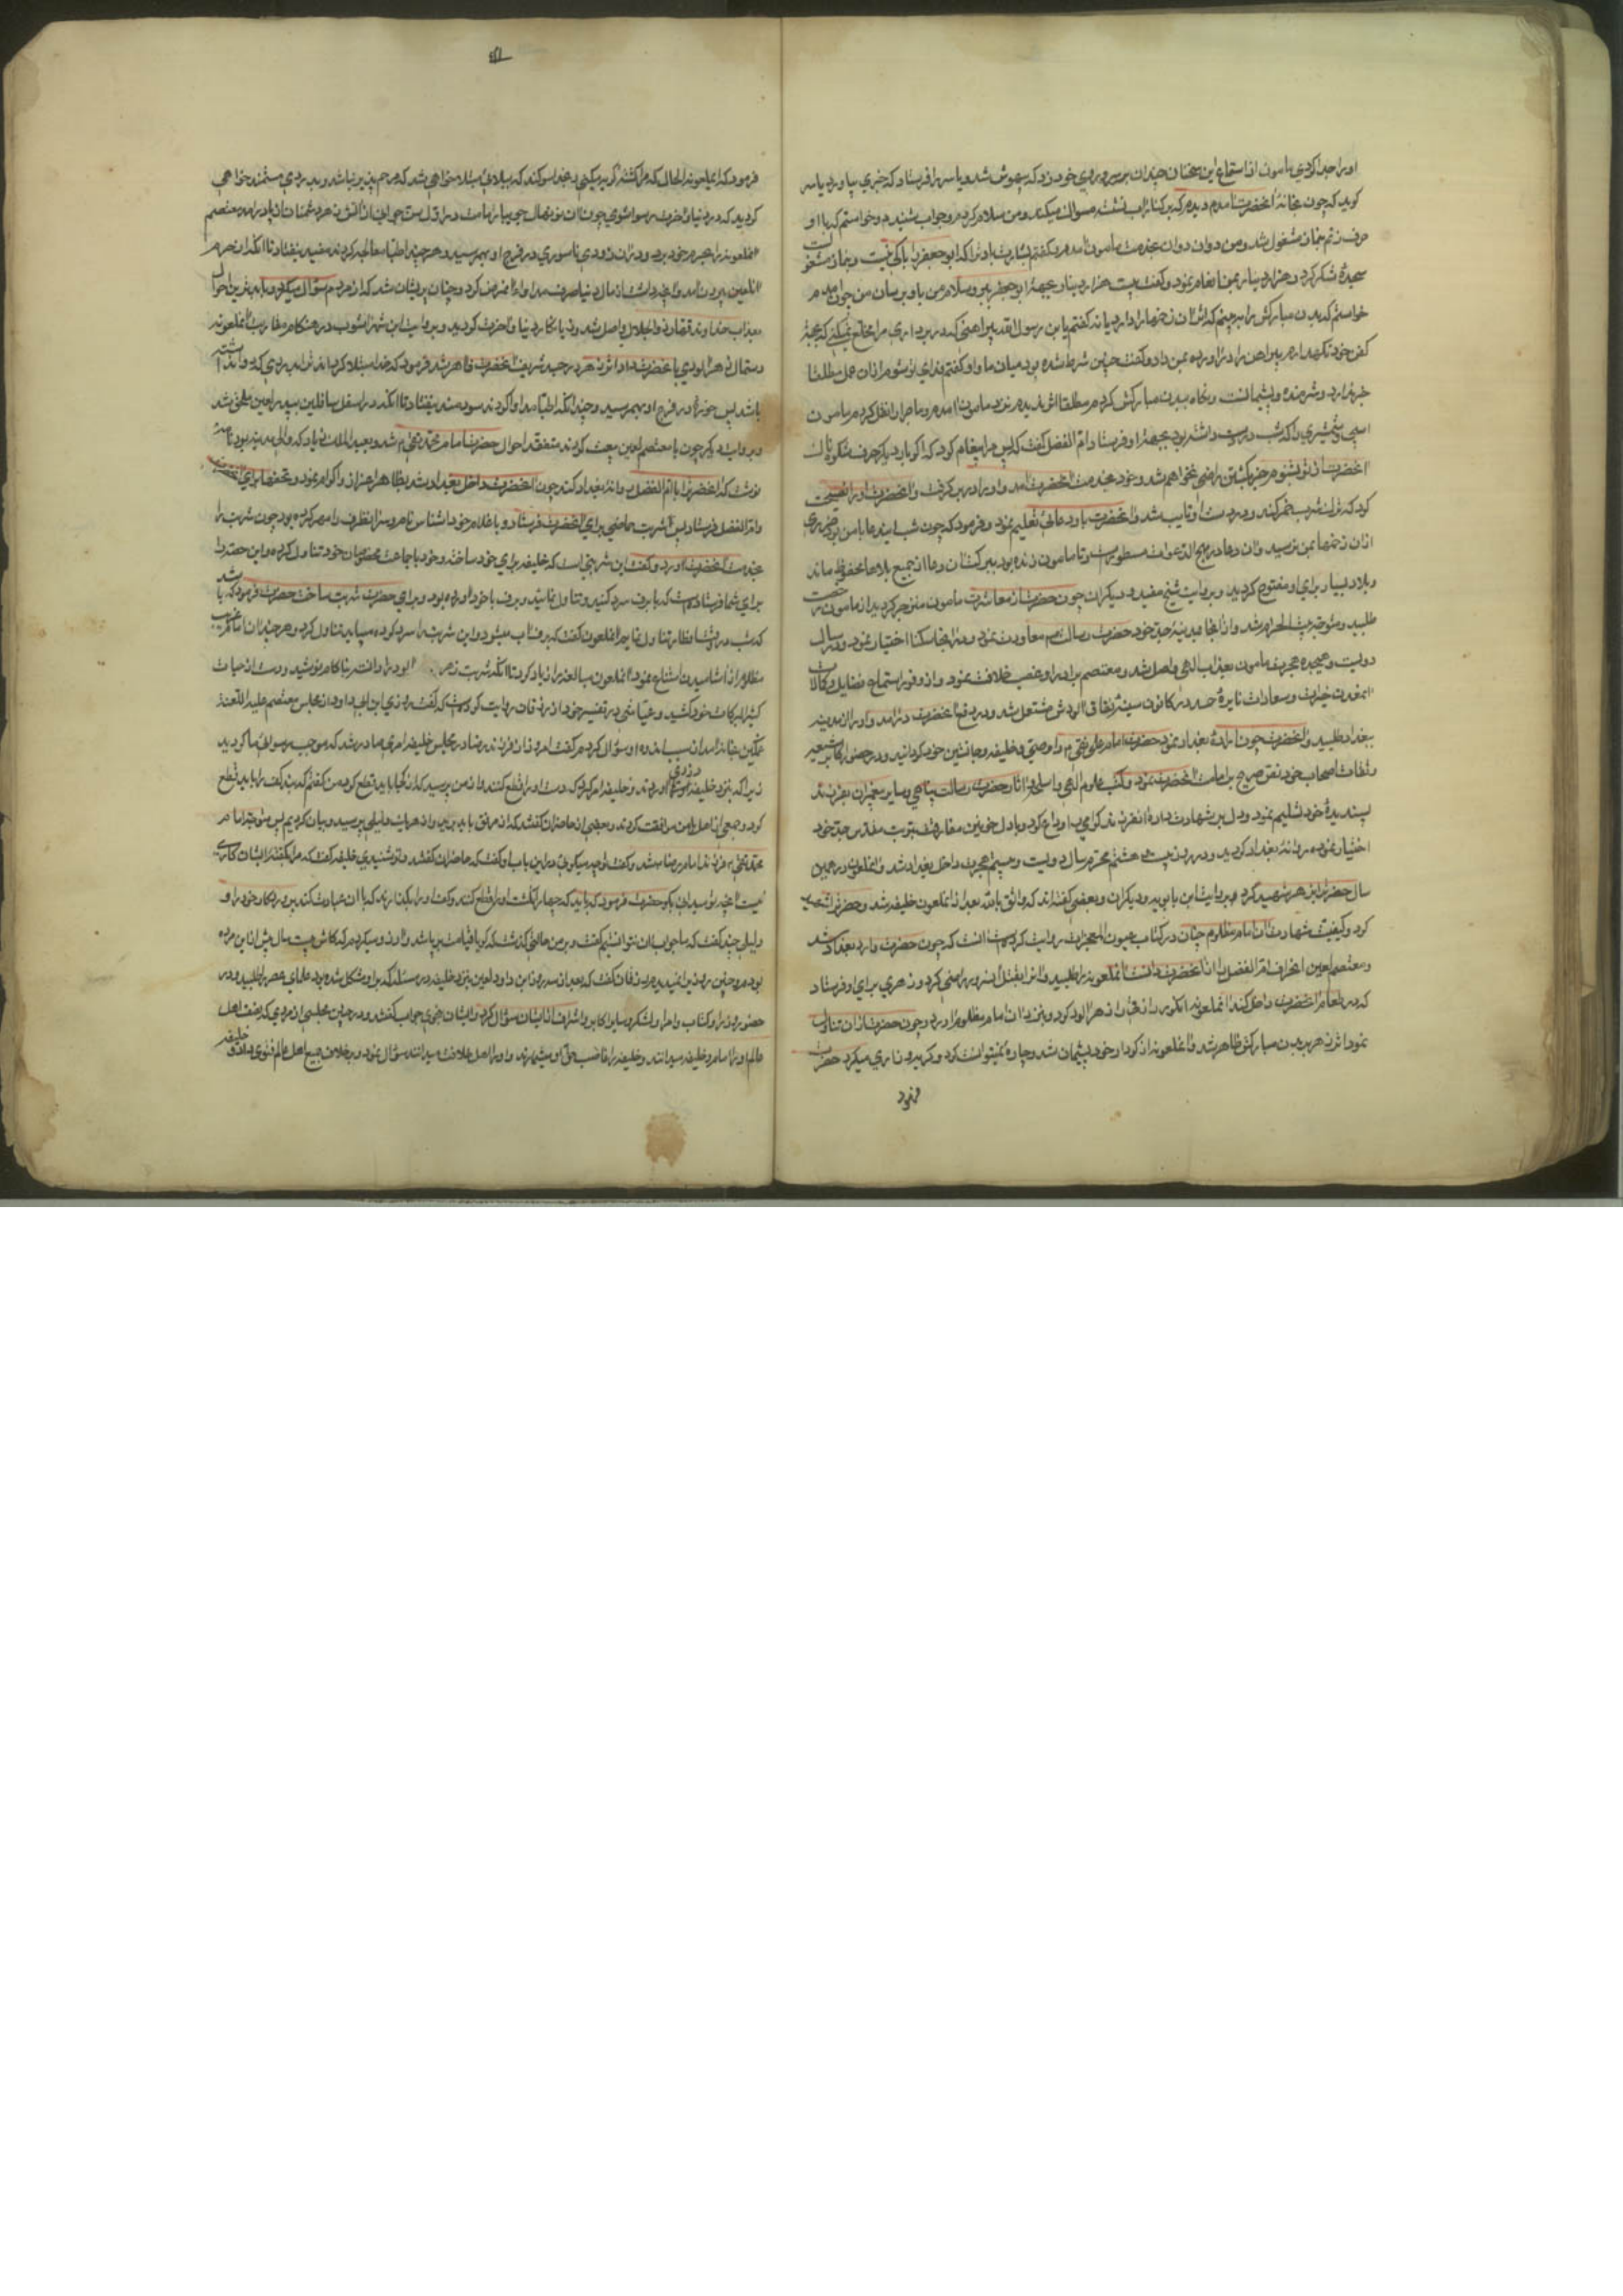 او را جدا کردی مامون از استماع این سخنان چندان بر سر و روی خود زد که بیهوش شد و یاسر را فرستاد که خبری بیاورد یاسر
کوید که چون بخانهٔ انحضرت آمدم دیدم که بر کنار آب نشسته مسواک میکند و من سلام کردم و جواب شنیدم و خواستم که با او
حرف زنم بنماز مشغول شد و من دوان دوان بخدمت مامون آمدم و کفتم بشارت باد ترا که ابو جعفر را باکی نیست و بنماز مشغول
سجدهٔ شکر کرد و هزار دینار بمن انعام نمود و کفت بیست هزار دینار بجهة ابو جعفر ببر و سلام من باو برسان من چون آمدم
خواستم که بدن مبارکش را ببینم که اثر ان زخمها را دارد یا نه کفتم یا بن رسول الله پیراهنی که در بر داری مرا خلع نمیکنی که بجهة
کفن خود نکهدارم پیراهن را در آورده بمن داد و کفت چنین شرط شده بود میان ما و او کفتم فدای تو شوم از ان عمل مطلقا
خبر ندارد و شرمنده و پشیمانست و نکاه ببدن مبارکش کردم مطلقا اثر ندیدم نزد مامون آمدم و ماجرا را نقل کردم مامون
اسبی و شمشیری را که شب در دست داشته بود بجهة او فرستاد و ام الفضل کفت که پس مرا پیغام کرد که اکر بار دیکر حرف شکوه از ان
انحضرت از تو بشنوم جز بکشتن راضی نخواهم شد و خود بخدمت انحضرت آمد و او را در بر کرفت و انحضرت او را نصیحت
کرد که ترک شرب خمر کند و در دست او تایب شد و انحضرت باو دعائی تعلیم نمود و فرمود که چون شب این دعا با من بود ضرری
از ان زخمها بمن نرسید و ان دعا در مهج الدعوات مسطور است و تا مامون زنده بود ببرکت ان دعا از جمیع بلاها محفوظ ماند
و بلاد بسیار برای او مفتوح کردید و بروایت شیخ مفید و دیکران چون حضرت از معاشرت مامون منزجر کردید از مامون رخصت
طلبید و متوجه بیت الحرام شد و از انجا بمدینهٔ جد خود حضرت رسالت معاودت نمود و در انجا سکنا اختیار نمود و در سال
دویست و هیجده هجرت مامون بعذاب الهی واصل شد و معتصم برادر او غصب خلافت نمود و از وفور استماع فضایل و کمالات
ان معدن خیرات و سعادات نایرهٔ حسد در کانون سینهٔ نفاق آلودش مشتعل شد و در دفع انحضرت در آمد و او را از مدینه
ببغداد طلبید و انحضرت چون ارادهٔ بغداد نمود حضرت امام علی نقی را وصی و خلیفه و جانشین خود کردانید و در حضور اکابر شیعه
و ثقات اصحاب خود نص صریح بر امامت انحضرت نمود و کتب علوم الهی و اسلحه و آثار حضرت رسالت پناهی و سایر پیغمبران بفرزند
پسندیدهٔ خود تسلیم نمود و دل بر شهادت داده ان فرزند کرامی را وداع کرد و با دل خونین مفارقت تربت مقدس جد خود
اختیار نموده روانهٔ بغداد کردید و در روز بیست هشتم محرم سال دویست و بیستم هجرت داخل بغداد شد و انملعون در همین
سال حضرت را بزهر شهید کرد و بروایت ابن بابویه و دیکران و بعضی کفته‌اند که واثق بالله بعد از ان ملعون خلیفه شد و حضرت را شهید
کرد و کیفیت شهادت ان امام مظلوم چنان در کتاب عیون المعجزات روایت کرده است انست که چون حضرت وارد بغداد شد
و معتصم لعین انحراف ام الفضل را از انحضرت دانست انملعونه را طلبید و او را بقتل ان سرور راضی کرد و زهری برای او فرستاد
که در طعام انحضرت داخل کند انملعونه انکور رازقی را زهر الود کرد و بنزد ان امام مظلوم آورد و چون حضرت از ان تناول
نمود اثر زهر در بدن مبارکش ظاهر شد و انملعونه از کردار خود پشیمان شد و چاره نمیتوانست کرد و کریه و زاری میکرد حضرت
فرمود
فرمود که ای ملعونه الحال که مرا کشته کریه میکنی بخدا سوکند که ببلائی مبتلا خواهی شد که مرهم پذیر نباشد و بدردی مستمند خواهی
کردید که در دنیا و آخرت رسوا شوی چون ان نونهال جویبار امامت در اول سن جوانی از آتش زهر دشمنان از پا در آمد معتصم
انملعونه را بحرم خود برد و در ان زودی ناسوری در فرج او بهم رسید و هر چند اطبا معالجه کردند مفید نیفتاد تا انکه از حرم
ان لعین بیرون آمد و انچه داشت از مال دنیا صرف مداوای مرض کرد و چنان پریشان شد که از مردم سؤال میکرد و با بدترین احوال
بعذاب خداوند قهار و ذو الجلال واصل شد و زیانکار دنیا و آخرت کردید و بروایت ابن شهر اشوب در هنکام مقاربت انملعونه
دستمال زهر الودی با انحضرت داد اثر زهر در جسد شریف انحضرت ظاهر شد فرمود که خدا مبتلا کرداند ترا بدردی که دوا نداشته
باشد پس خوره در فرج او بهم رسید و چندانکه اطبا مداوا کردند سودمند نیفتاد تا انکه در اسفل سافلین بپدر لعین ملحق شد
و بروایت دیکر چون با معتصم لعین بیعت کردند متفقد احوال حضرت امام محمد تقی شد و بعبد الملک زیاد که والی مدینه بود نامهٔ
نوشت که انحضرت را با ام الفضل روانهٔ بغداد کند چون انحضرت داخل بغداد شد بظاهر اعزاز و اکرام نمود و تحفها برای انحضرت
و ام الفضل فرستاد پس شربت حماضی برای انحضرت فرستاد و با غلام خود اشناس نام و سر ان ظرف را مهر کرده بود چون شربت را
بخدمت انحضرت آورد و کفت این شربتی است که خلیفه برای خود ساخته و خود با جماعت مخصوصان خود تناول کرده و این حصه را
برای شما فرستاده است که با برف سرد کنید و تناول نمائید و برف با خود آورده بود و برای حضرت شربت ساخت حضرت فرمود که باشد
که شب در وقت افطار تناول نمایم انملعون کفت که برف آب میشود و این شربت را سرد کرده میباید تناول کرد و هر چند ان امام غریب
مظلوم از آشامیدن امتناع نمود انملعون مبالغه را زیاد کرد تا انکه شربت زهر الود را دانسته ناکام نوشید و دست از حیات
کثیر البرکات خود کشید و عیاشی در تفسیر خود از زرقان روایت کرده است که کفت روزی ابن ابی داود از مجلس معتصم علیه اللعنة
غمکین بخانه آمد از سبب اندوه او سؤال کردم کفت امروز از فرزند رضا در مجلس خلیفه امری صادر شد که موجب رسوائی ما کردید
زیرا که بنزد خلیفه دزدی آوردند و خلیفه امر کرد که دست او را قطع کنند و از من پرسید که از کجا باید قطع کرد من کفتم که بند کف را باید قطع
کرد و جمعی از اهل با من موافقت کردند و بعضی از حاضران کفتند که از مرفق باید برید و از هر یک دلیلی پرسید و بیان کردیم پس متوجه امام
محمد تقی فرزند امام رضا شد و کفت تو چه میکوئی در این باب او کفت که حاضران کفتند و تو شنیدی خلیفه کفت که مرا بکفتهٔ ایشان کاری
نیست انچه تو میدانی بکو حضرت فرمود که باید که چهار انکشت او را قطع کنند و کف او را بکذارند که با ان عبادت کند پروردکار خود را و
دلیلی چند کفت که ما جواب ان نتوانستیم کفت و بر من حالتی کذشت که کویا قیامت بر پا شد و آرزو میکردم که کاش بیست سال پیش از این مرده
بودم و چنین روزی نمیدیدم زرقان کفت که بعد از سه روز ابن داود لعین بنزد خلیفه در مسئله که بر او مشکل شده بود علمای عصر را طلبید و در
حضور وزرا و کتاب و امرا و لشکر و سایر اکابر و اشراف از ایشان سؤال کرد و ایشان نحوی جواب کفتند و در چنین مجلسی از مردی که نصف اهل
عالم او را امام و خلیفه میدانند و خلیفه را غاصب حق او میشمرند و او را اهل خلافت میدانند سؤال نمود و بر خلاف جمیع اهل عالم فتوی داد و خلیفه